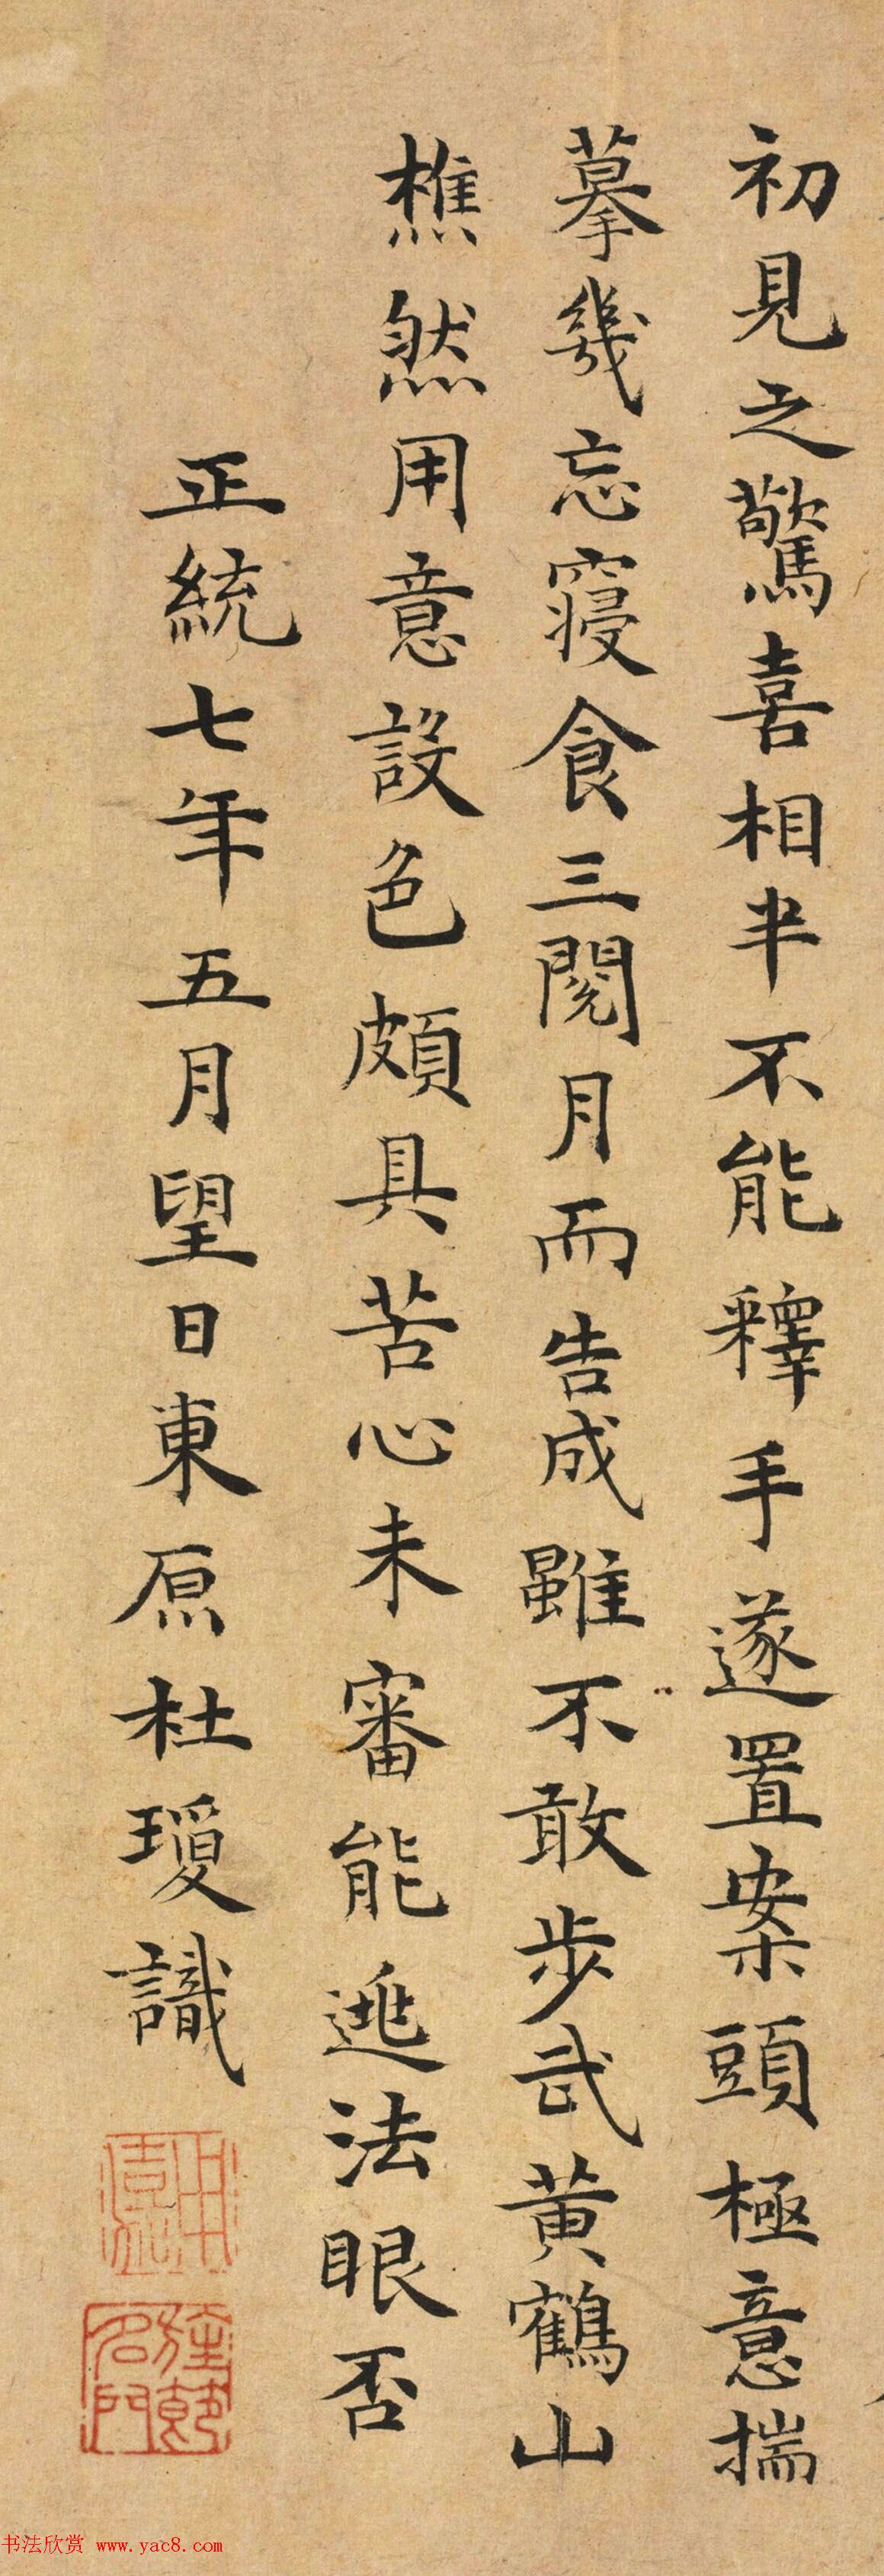 初見之驚喜相半不能釋手遂置案頭極意揣
摹幾忘寢食三閱月而告成雖不敢步武黄鶴山
樵然用意設色頗具苦心未審能逃法眼否
正統七年五月望日東原杜瓊識
书法欣赏 www.yac8.com